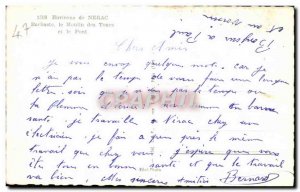 1328 Environs de NERAC
Barbaste, le Moulin des Tours
et le Pont
47
Bonjour à Paul
et
Chers Amis
Je vous envoy quelque mot. car je
n'ai pas le temps de vous faire une longue
lettre. soit que je n'ai pas le temps ou
la flemme
santé, je travaille à Nérac chez un
électricien. je fais à peu près le même
travail que chez vous. j'espère que vous
êtes tous en bonne santé et que le travail
va bien. Mes sincères amitiés Bernard